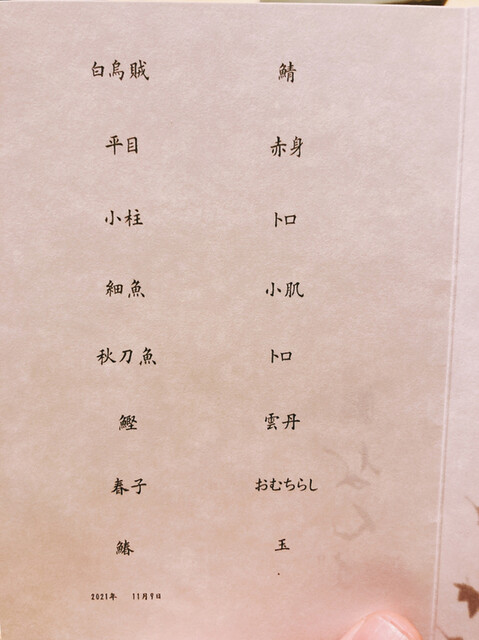 白烏賊
平目
小柱
細魚
秋刀魚
鰹
春子
鰆
鯖
赤身
トロ
小肌
トロ
雲丹
おむちらし
玉
2021年 11月9日